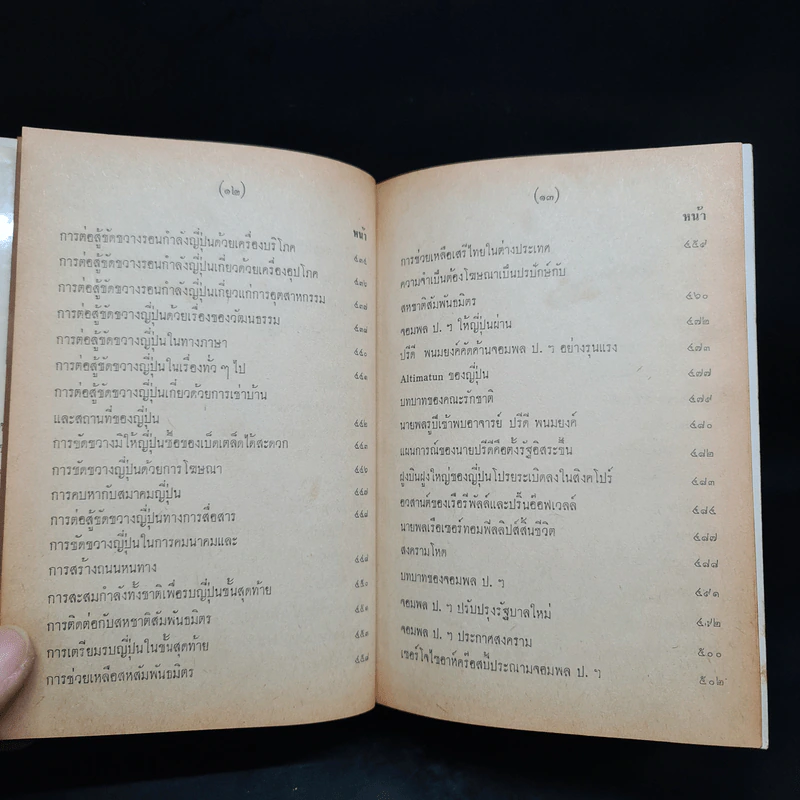 (๑๒)
หน้า
การต่อสู้ขัดขวางรอนกำลังญี่ปุ่นด้วยเครื่องบริโภค ๔๓๔
การต่อสู้ขัดขวางรอนกำลังญี่ปุ่นเกี่ยวด้วยเครื่องอุปโภค ๔๓๖
การต่อสู้ขัดขวางรอนกำลังญี่ปุ่นเกี่ยวแก่การอุตสาหกรรม ๔๓๗
การต่อสู้ขัดขวางญี่ปุ่นด้วยเรื่องของวัฒนธรรม ๔๓๗
การต่อสู้ขัดขวางญี่ปุ่นในทางภาษา ๔๔๐
การต่อสู้ขัดขวางญี่ปุ่นในเรื่องทั่ว ๆ ไป ๔๔๑
การต่อสู้ขัดขวางญี่ปุ่นเกี่ยวด้วยการเช่าบ้าน
และสถานที่ของญี่ปุ่น ๔๔๒
การขัดขวางมิให้ญี่ปุ่นซื้อของเบ็ดเตล็ดได้สะดวก ๔๔๒
การขัดขวางญี่ปุ่นด้วยการโฆษณา ๔๔๖
การคบหากับสมาคมญี่ปุ่น ๔๔๗
การต่อสู้ขัดขวางญี่ปุ่นทางการสื่อสาร ๔๔๘
การขัดขวางญี่ปุ่นในการคมนาคมและ
การสร้างถนนหนทาง ๔๔๘
การสะสมกำลังทั้งชาติเพื่อรบญี่ปุ่นขั้นสุดท้าย ๔๕๐
การติดต่อกับสหชาติสัมพันธมิตร ๔๕๑
การเตรียมรบญี่ปุ่นในขั้นสุดท้าย ๔๕๑
การช่วยเหลือสหสัมพันธมิตร ๔๕๘
(๑๓)
หน้า
การช่วยเหลือเสรีไทยในต่างประเทศ ๔๕๙
ความจำเป็นต้องโฆษณาเป็นปรปักษ์กับ
สหชาติสัมพันธมิตร ๔๖๐
จอมพล ป. ฯ ให้ญี่ปุ่นผ่าน ๔๗๒
ปรีดี พนมยงค์คัดค้านจอมพล ป. ฯ อย่างรุนแรง ๔๗๓
Altimatun ของญี่ปุ่น ๔๗๗
บทบาทของคณะรักชาติ ๔๗๙
นายพลรูบีเข้าพบอาจารย์ ปรีดี พนมยงค์ ๔๘๐
แผนการณ์ของนายปรีดีคือตั้งรัฐอิสระขึ้น ๔๘๒
ฝูงบินฝูงใหญ่ของญี่ปุ่นโปรยระเบิดลงในสิงคโปร์ ๔๘๓
อวสานต์ของเรือรีพัลส์และปริ๊นอ๊อฟเวลล์ ๔๘๔
นายพลเรือเซอร์ทอมฟิลลิปส์สิ้นชีวิต ๔๘๗
สงครามโหด ๔๘๘
บทบาทของจอมพล ป. ฯ ๔๙๑
จอมพล ป. ฯ ปรับปรุงรัฐบาลใหม่ ๔๙๒
จอมพล ป. ฯ ประกาศสงคราม ๕๐๐
เซอร์โจไซอาห์ครอสบีประณามจอมพล ป. ฯ ๕๐๒